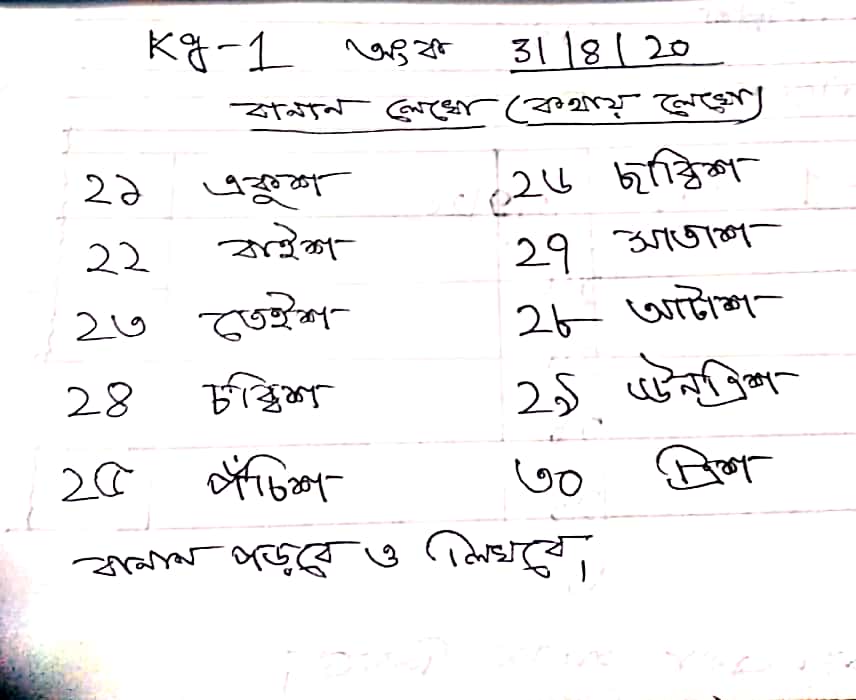 Kg-1 অংক 31/8/20
বানান লেখো (কথায় লেখো)
২১ একুশ ২৬ ছাব্বিশ
২২ বাইশ ২৭ সাতাশ
২৩ তেইশ ২৮ আটাশ
২৪ চব্বিশ ২৯ ঊনত্রিশ
২৫ পঁচিশ ৩০ ত্রিশ
বানান পড়বে ও লিখবে।